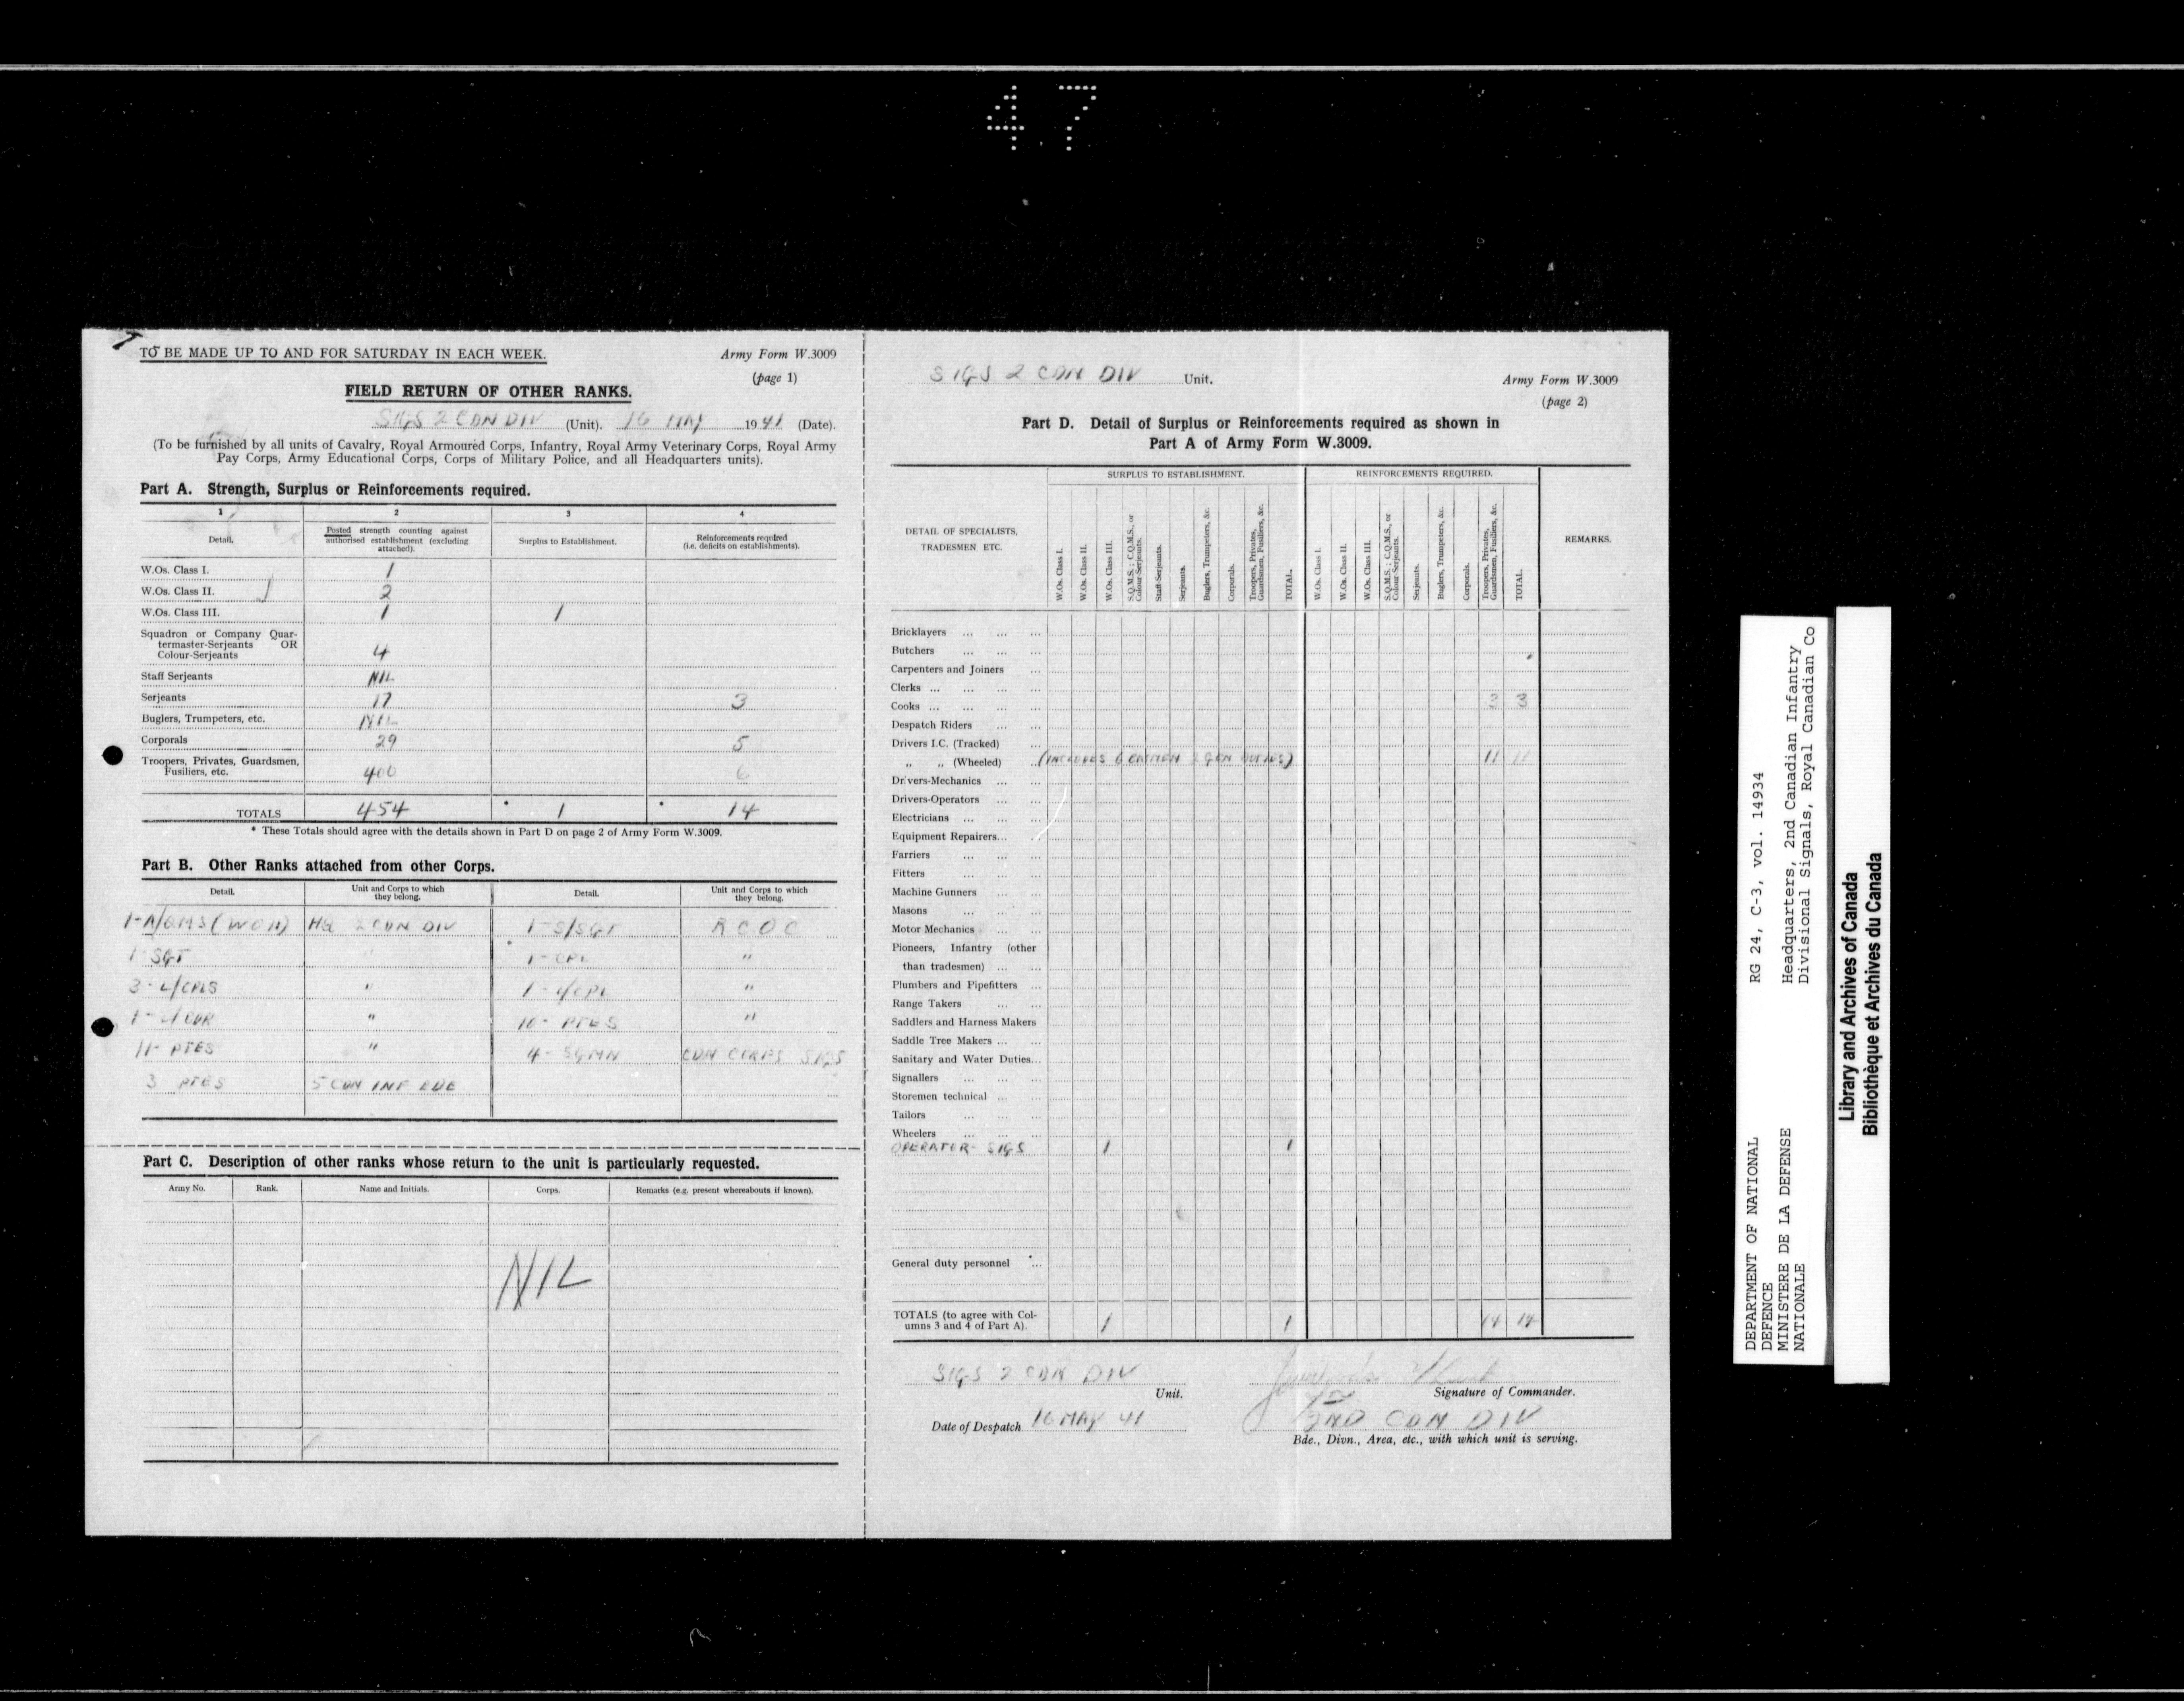 47
TO BE MADE UP TO AND FOR SATURDAY IN EACH WEEK.
Army Form W.3009
(page 1)
FIELD RETURN OF OTHER RANKS.
SIGS 2 CDN DIV (Unit). 16 MAY 1941 (Date).
(To be furnished by all units of Cavalry, Royal Armoured Corps, Infantry, Royal Army Veterinary Corps, Royal Army
Pay Corps, Army Educational Corps, Corps of Military Police, and all Headquarters units).
Part A. Strength, Surplus or Reinforcements required.
1 2 3 4
Detail. Posted strength counting against authorised establishment (excluding attached). Surplus to Establishment. Reinforcements required (i.e. deficits on establishments).
W.Os. Class I. 1
W.Os. Class II. 2
W.Os. Class III. 1 1
Squadron or Company Quar-
termaster-Serjeants OR
Colour-Serjeants 4
Staff Serjeants NIL
Serjeants 17 3
Buglers, Trumpeters, etc. NIL
Corporals 29 5
Troopers, Privates, Guardsmen,
Fusiliers, etc. 400 6
TOTALS 454 * 1 * 14
* These Totals should agree with the details shown in Part D on page 2 of Army Form W.3009.
Part B. Other Ranks attached from other Corps.
Detail. Unit and Corps to which they belong. Detail. Unit and Corps to which they belong.
1-A/QMS (WOII) HQ 2 CDN DIV 1-S/SGT R C O C
1-SGT 1-CPL "
3-L/CPLS " 1-L/CPL "
1- " 10-PTES "
11-PTES " 4-SGMN CDN CORPS SIGS
3 PTES 5 CDN INF BDE
Part C. Description of other ranks whose return to the unit is particularly requested.
Army No. Rank. Name and Initials. Corps. Remarks (e.g. present whereabouts if known).
NIL
SIGS 2 CDN DIV Unit.
Army Form W.3009
(page 2)
Part D. Detail of Surplus or Reinforcements required as shown in
Part A of Army Form W.3009.
SURPLUS TO ESTABLISHMENT. REINFORCEMENTS REQUIRED.
DETAIL OF SPECIALISTS,
TRADESMEN ETC.
W.Os. Class I.
W.Os. Class II.
W.Os. Class III.
S.Q.M.S.; C.Q.M.S., or Colour-Serjeants.
Staff-Serjeants.
Serjeants.
Buglers, Trumpeters, &c.
Corporals.
Troopers, Privates, Guardsmen, Fusiliers, &c.
TOTAL.
W.Os. Class I.
W.Os. Class II.
W.Os. Class III.
S.Q.M.S.; C.Q.M.S., or Colour Serjeants.
Serjeants.
Buglers, Trumpeters, &c.
Corporals.
Troopers, Privates, Guardsmen, Fusiliers, &c.
TOTAL.
REMARKS.
Bricklayers ... ... ...
Butchers ... ... ...
Carpenters and Joiners ...
Clerks ... ... ... ...
Cooks ... ... ... ... 3 3
Despatch Riders ... ...
Drivers I.C. (Tracked) ...
„ „ (Wheeled) ... (INCLUDES 6 2 GEN DUTIES) 11 11
Drivers-Mechanics ... ...
Drivers-Operators ... ...
Electricians ... ... ...
Equipment Repairers... ...
Farriers ... ... ...
Fitters ... ... ...
Machine Gunners ... ...
Masons ... ... ...
Motor Mechanics ... ...
Pioneers, Infantry (other
than tradesmen) ... ...
Plumbers and Pipefitters ...
Range Takers ... ...
Saddlers and Harness Makers
Saddle Tree Makers ... ...
Sanitary and Water Duties...
Signallers ... ... ...
Storemen technical ... ...
Tailors ... ... ...
Wheelers ... ... ...
OPERATOR- SIGS 1 1
General duty personnel ...
TOTALS (to agree with Col-
umns 3 and 4 of Part A). 1 1 14 14
SIGS 2 CDN DIV
Unit.
Signature of Commander.
Date of Despatch 16 MAY 41
2ND CDN DIV
Bde., Divn., Area, etc., with which unit is serving.
DEPARTMENT OF NATIONAL
DEFENCE
MINISTERE DE LA DEFENSE
NATIONALE
RG 24, C-3, vol. 14934
Headquarters, 2nd Canadian Infantry
Divisional Signals, Royal Canadian Co
Library and Archives of Canada
Bibliothèque et Archives du Canada